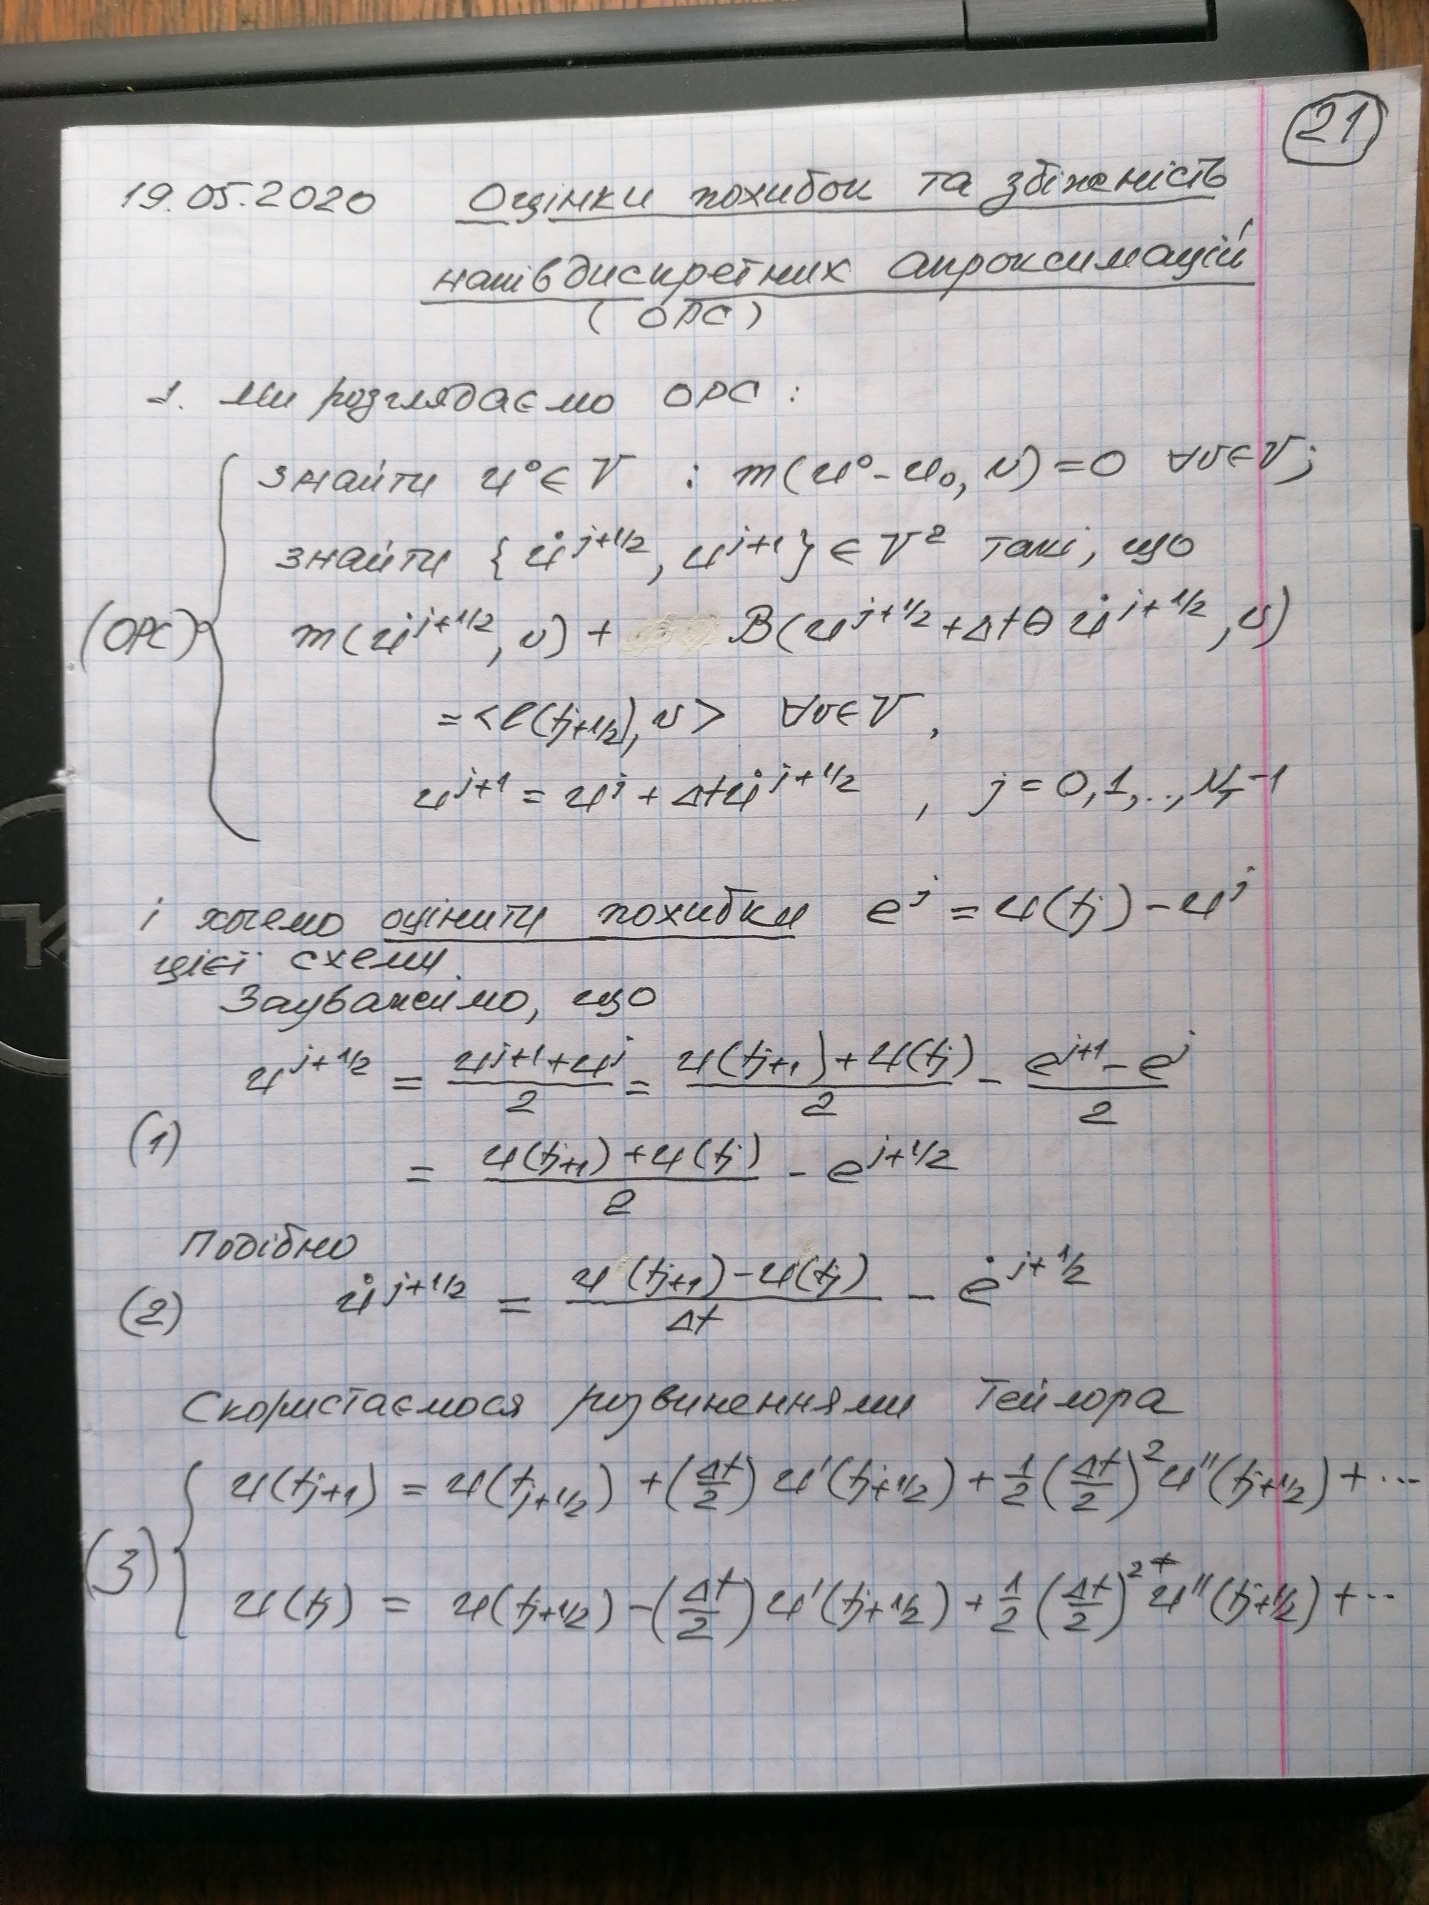 21
19.05.2020 Оцінки похибок та збіжність
напівдискретних апроксимацій
(ОРС)
1. Ми розглядаємо ОРС:
знайти u⁰ ∈ V : m(u⁰ - u₀, v) = 0 ∀v∈V;
знайти {u̇^{j+1/2}, u^{j+1}} ∈ V² такі, що
(ОРС) m(u̇^{j+1/2}, v) + B(u^{j+1/2} + Δtθ u̇^{j+1/2}, v)
= <l(t_{j+1/2}), v> ∀v∈V,
u^{j+1} = u^j + Δt u̇^{j+1/2}, j = 0,1,..., N_T-1
і хочемо оцінити похибки e^j = u(t_j) - u^j
цієї схеми.
Зауважимо, що
u^{j+1/2} = (u^{j+1} + u^j)/2 = (u(t_{j+1}) + u(t_j))/2 - (e^{j+1} - e^j)/2
(1) = (u(t_{j+1}) + u(t_j))/2 - e^{j+1/2}
Подібно
(2) u̇^{j+1/2} = (u(t_{j+1}) - u(t_j))/Δt - ė^{j+1/2}
Скористаємося розвиненнями Тейлора
u(t_{j+1}) = u(t_{j+1/2}) + (Δt/2) u'(t_{j+1/2}) + 1/2 (Δt/2)² u''(t_{j+1/2}) + ...
(3) u(t_j) = u(t_{j+1/2}) - (Δt/2) u'(t_{j+1/2}) + 1/2 (Δt/2)² u''(t_{j+1/2}) + ...